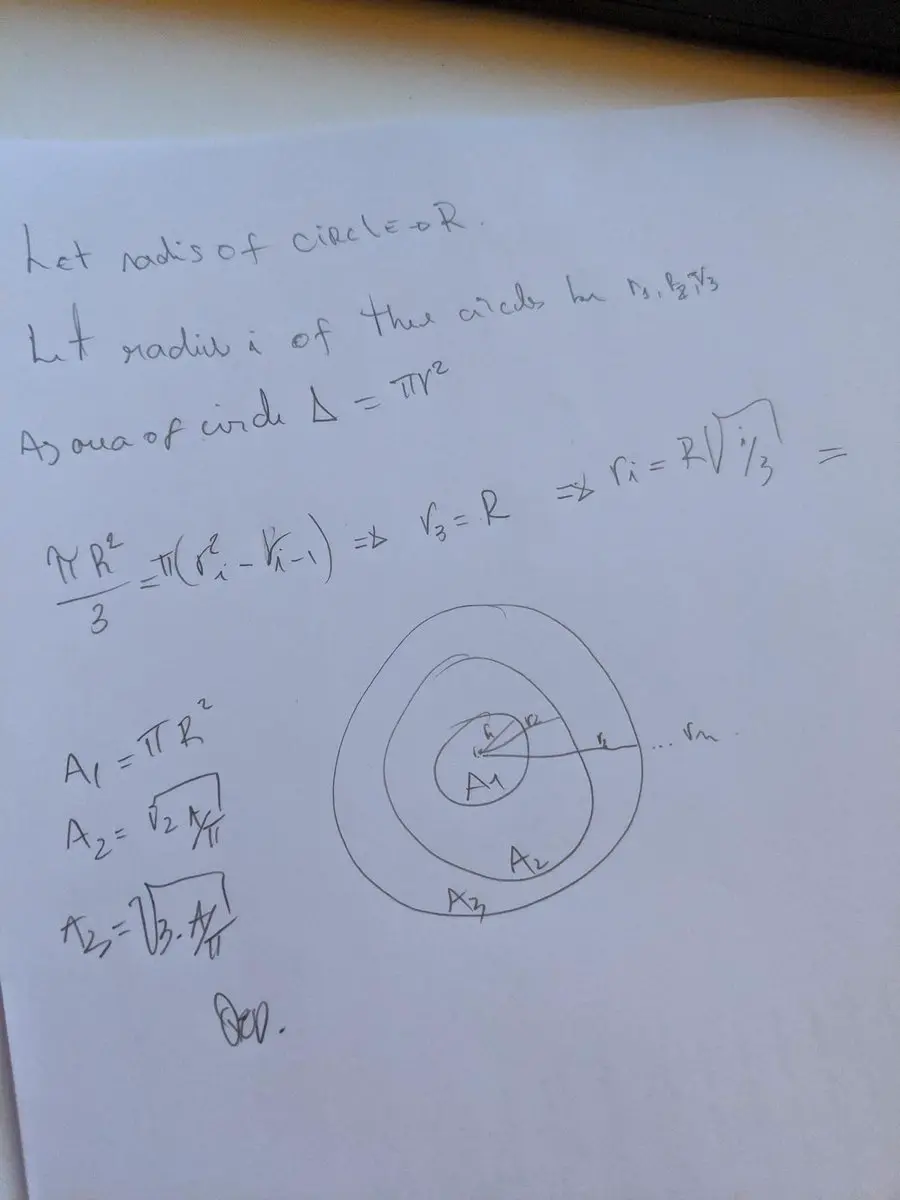 Let radis of CIRCLE → R.
Let radius i of thre circles be r₁, r₂, r₃
As area of circle Δ = πr²
πR²/3 = π(r²ᵢ - rᵢ₋₁) ⇒ r₃ = R ⇒ rᵢ = R√(i/3) =
A₁ = πR²
A₂ = √(2A/π)
A₃ = √(3.A/π)
r₁ r₂ r₃ ... rₙ.
A1
A₂
A₃
QED.